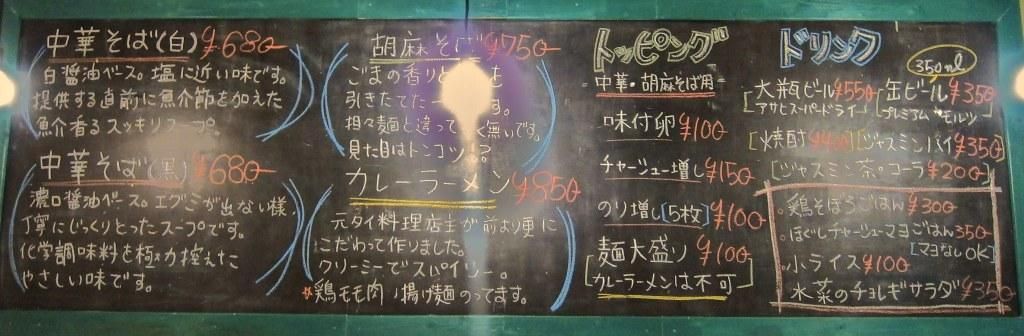 中華そば(白) ¥680
白醤油ベース。塩に近い味です。
提供する直前に魚介節を加えた
魚介香るスッキリスープ。
中華そば(黒) ¥680
濃口醤油ベース。エグミが出ない様
丁寧にじっくりとったスープです。
化学調味料を極力控えた
やさしい味です。
胡麻そば ¥750
ごまの香りと
引きたてた
担々麺と違って 無いです。
見た目はトンコツ!?
カレーラーメン ¥850
元タイ料理店主が前より更に
こだわって作りました。
クリーミーでスパイシー。
☆鶏モモ肉 揚げ麺のってます。
トッピング
中華・胡麻そば用
味付卵 ¥100
チャーシュー増し ¥150
のり増し[5枚] ¥100
麺大盛り ¥100
[カレーラーメンは不可]
ドリンク
350ml
大瓶ビール ¥550 缶ビール ¥350
[アサヒスーパードライ] [プレミアムモルツ]
[焼酎 ¥400] [ジャスミンハイ ¥350]
[ジャスミン茶。コーラ ¥200]
。鶏そぼろごはん ¥300
。ほぐしチャーシューマヨごはん 350
[マヨなしOK]
。小ライス ¥100
。水菜のチョレギサラダ ¥350